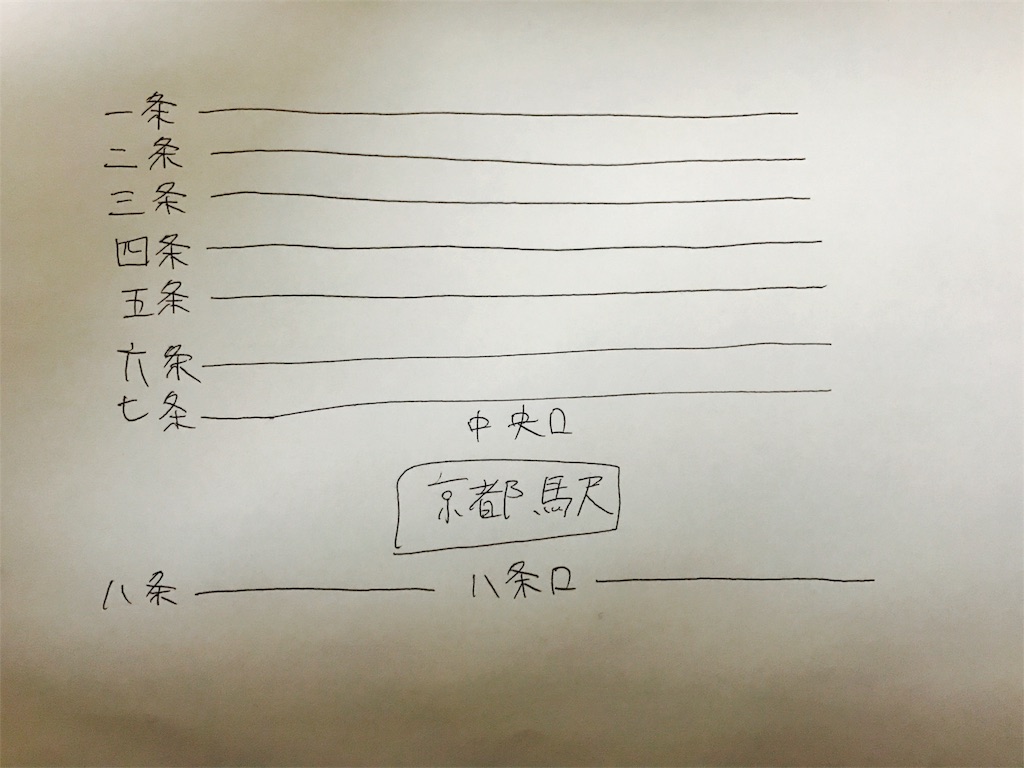 一条
二条
三条
四条
五条
六条
七条
中央口
京都駅
八条 八条口